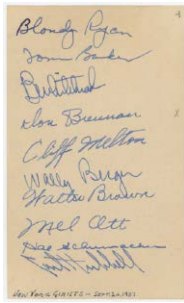 Blondy Ryan
Tom Baker
Don Brennan
Cliff Melton
Wally Berger
Walter Brown
Mel Ott
Hal Schumacher
Carl Hubbell
NEW YORK GIANTS - SEPT 20, 1937